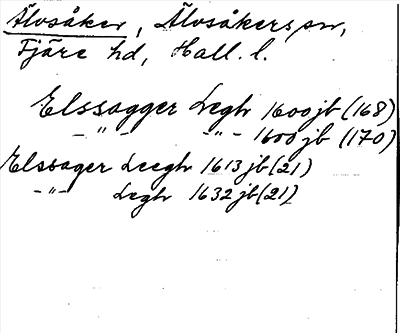 Älvsåker, Älvsåkers sn,
Fjäre hd, Hall. l.
Elssagger Legh 1600 jb (168)
-"- -"- 1600 jb (170)
Elssager Leegh 1613 jb (21)
-"- Legh 1632 jb (21)